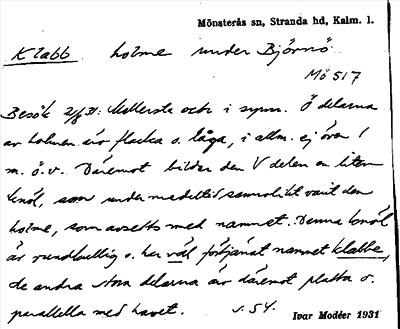 Mönsterås sn, Stranda hd, Kalm. l.
Klabb holme under Björnö
Mö 517
Besök 2/8 31: Mellersta och i synn. Ö delarna
av holmen äro flacka o. låga, i allm. ej över 1
m. ö. v. Däremot bildar den V delen en liten
knöl, som under medeltid sannolikt varit den
holme, som avsetts med namnet. Denna knöl
är rundkullig o. har väl förtjänat namnet klabbe,
de andra stora delarna är däremot platta o.
parallella med havet. s. 54.
Ivar Modéer 1931